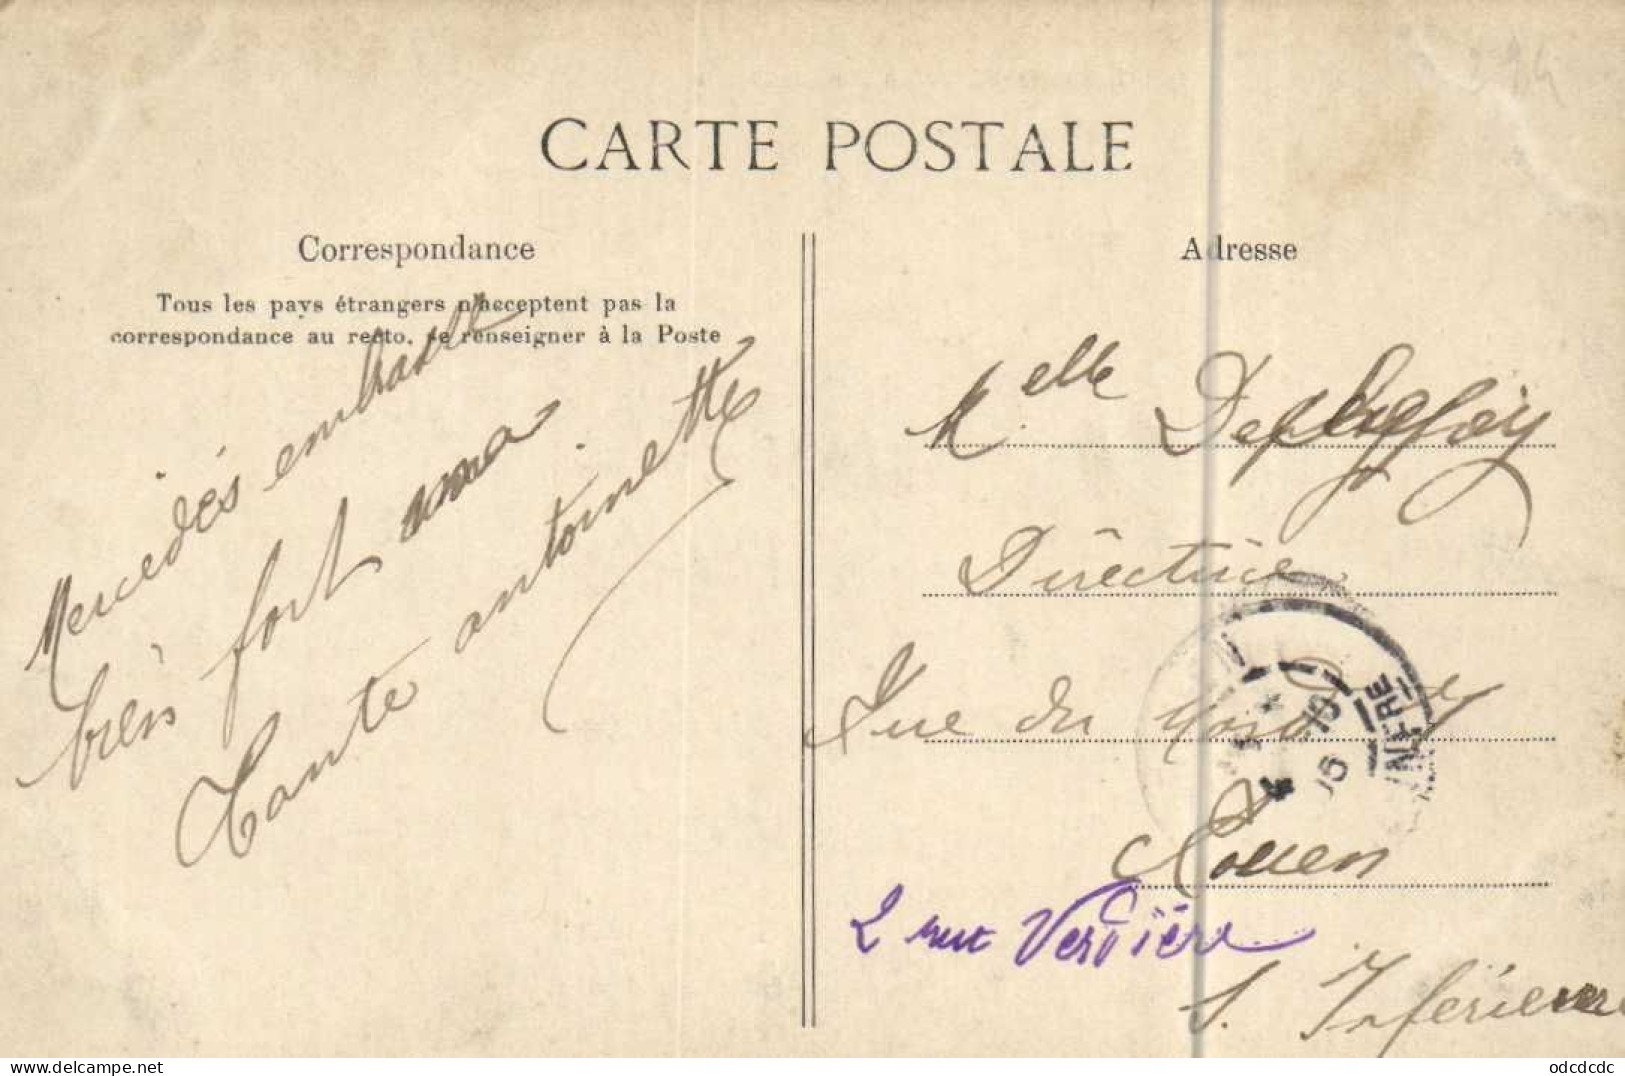 CARTE POSTALE
Correspondance
Tous les pays étrangers n'acceptent pas la
correspondance au recto, se renseigner à la Poste
Mercédès embrasse
bien fort sa
Tante antoinette
Adresse
Melle
Directrice
Rue du
Rouen
2 rue Verdière
S. Inférieure
delcampe.net
odcdcdc